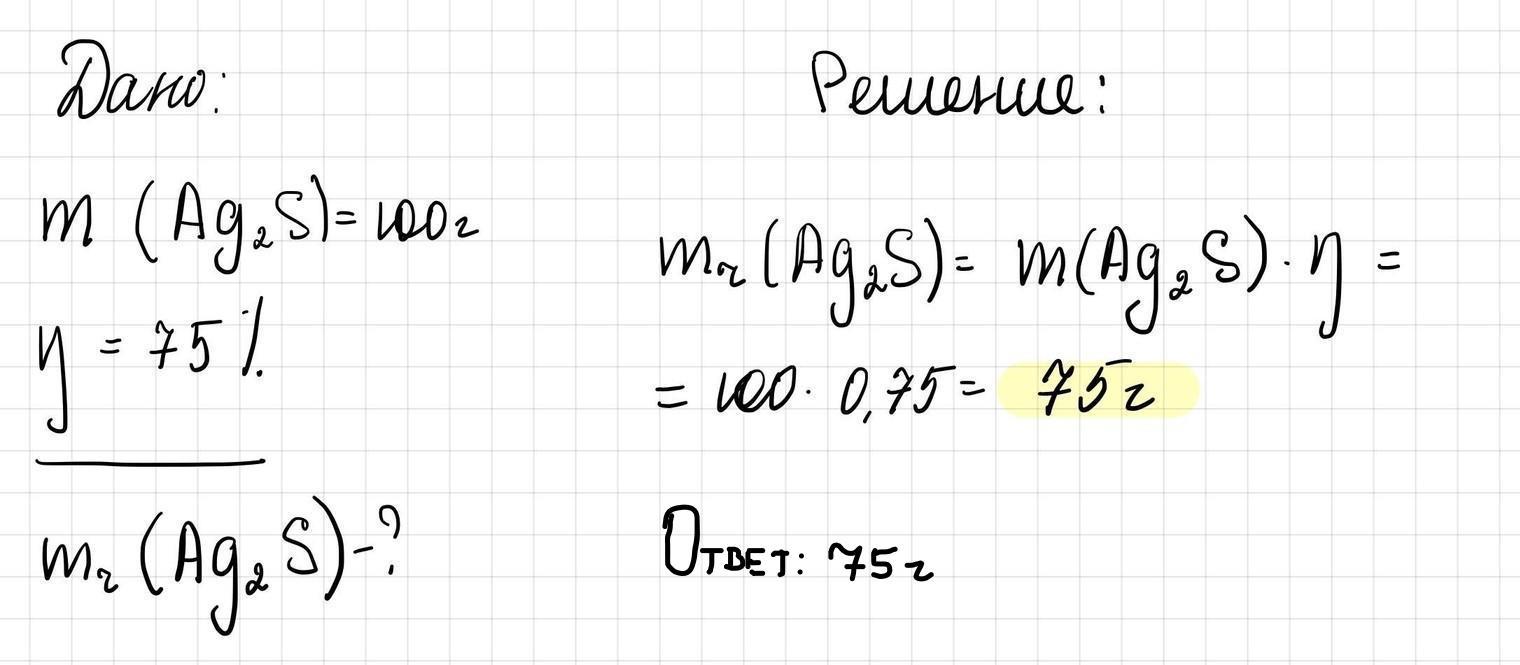 Дано:
m (Ag₂S) = 100 г
η = 75 %
mᵣ (Ag₂S) - ?
Решение:
mᵣ (Ag₂S) = m(Ag₂S) · η =
= 100 · 0,75 = 75 г
Ответ: 75 г